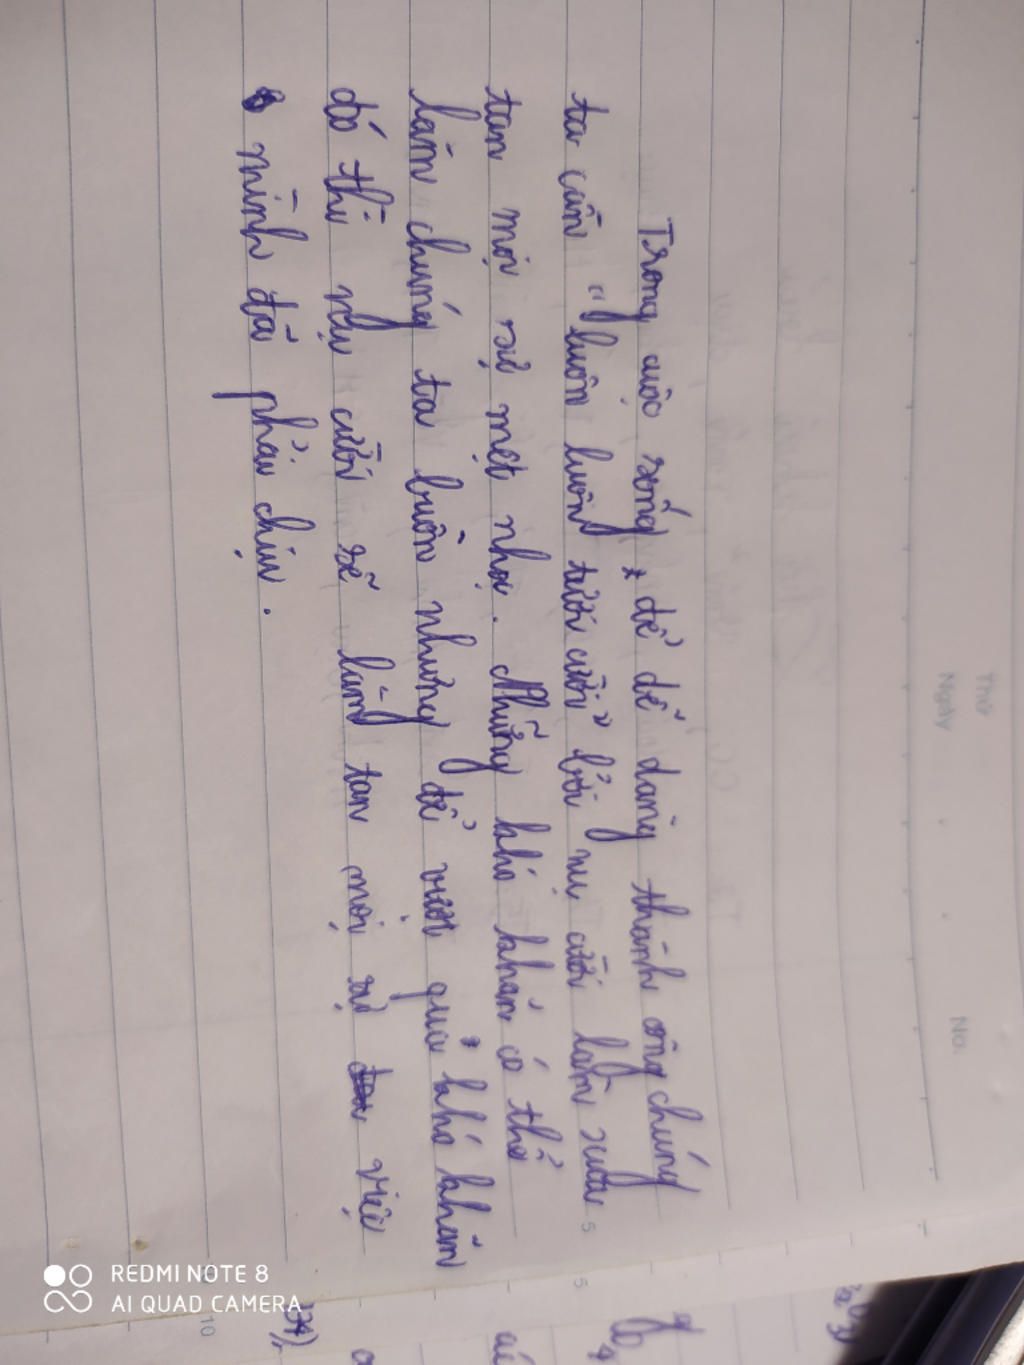 Trong cuộc sống, để dễ dàng thành công chúng
ta cần "luôn luôn tươi cười" bởi nụ cười làm xua
tan mọi sự mệt nhọc. Những khó khăn có thể
làm chúng ta buồn nhưng để vượt qua khó khăn
đó thì nụ cười sẽ làm tan mọi sự việc
mình đã phải chịu.
Thứ
Ngày
No.
5
5
10
REDMI NOTE 8
AI QUAD CAMERA